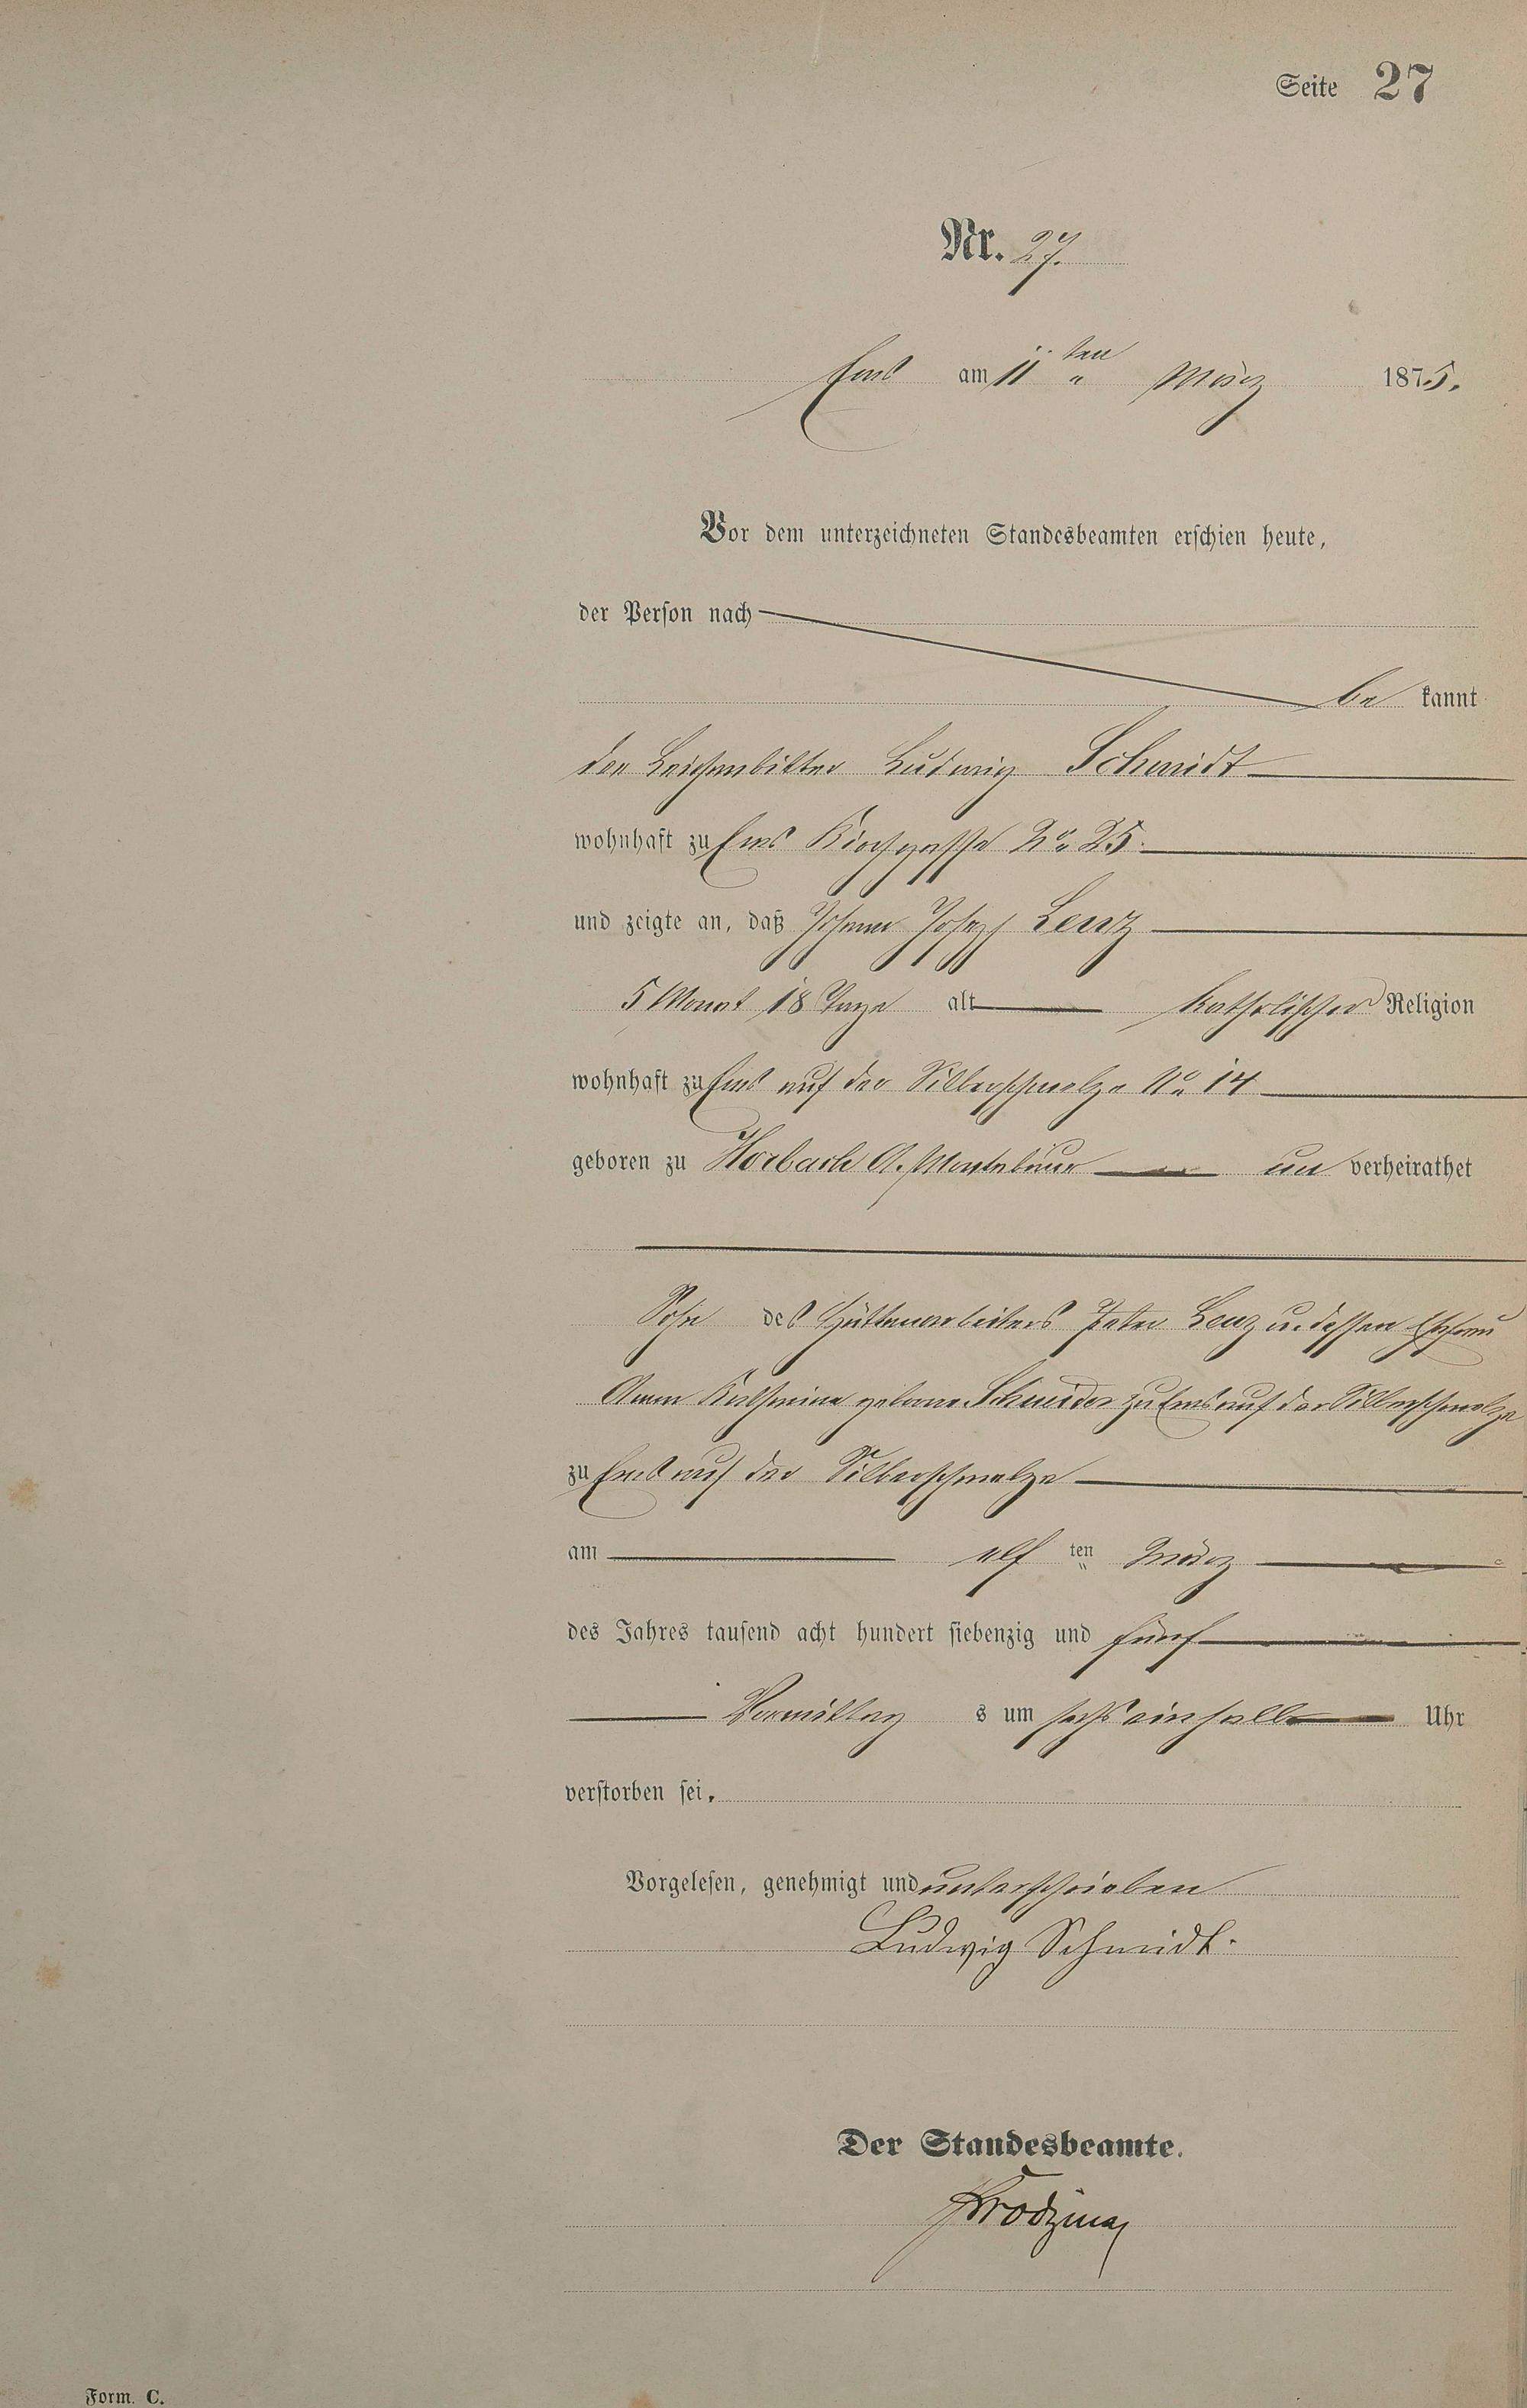 Seite 27
Nr. 27.
Ems am 11ten März 1875.
Vor dem unterzeichneten Standesbeamten erschien heute,
der Person nach
be kannt
der Leichenbitter Ludwig Schmidt
wohnhaft zu Ems Kirchgasse No 25.
und zeigte an, daß Johann Joseph Lenz
5 Monat 18 Tage alt katholischer Religion
wohnhaft zu Ems auf der Silberschmelze No 14
geboren zu Horbach A. Montabaur un verheirathet
Sohn des Hüttenarbeiters Peter Lenz u. dessen Ehefrau
Anna Katharina geborne Schneider zu Ems auf der Silberschmelze
zu Ems auf der Silberschmelze
am elf ten März
des Jahres tausend acht hundert siebenzig und fünf
Vormittag s um sechs einhalb Uhr
verstorben sei.
Vorgelesen, genehmigt und unterschrieben
Ludwig Schmidt.
Der Standesbeamte.
Form. C.